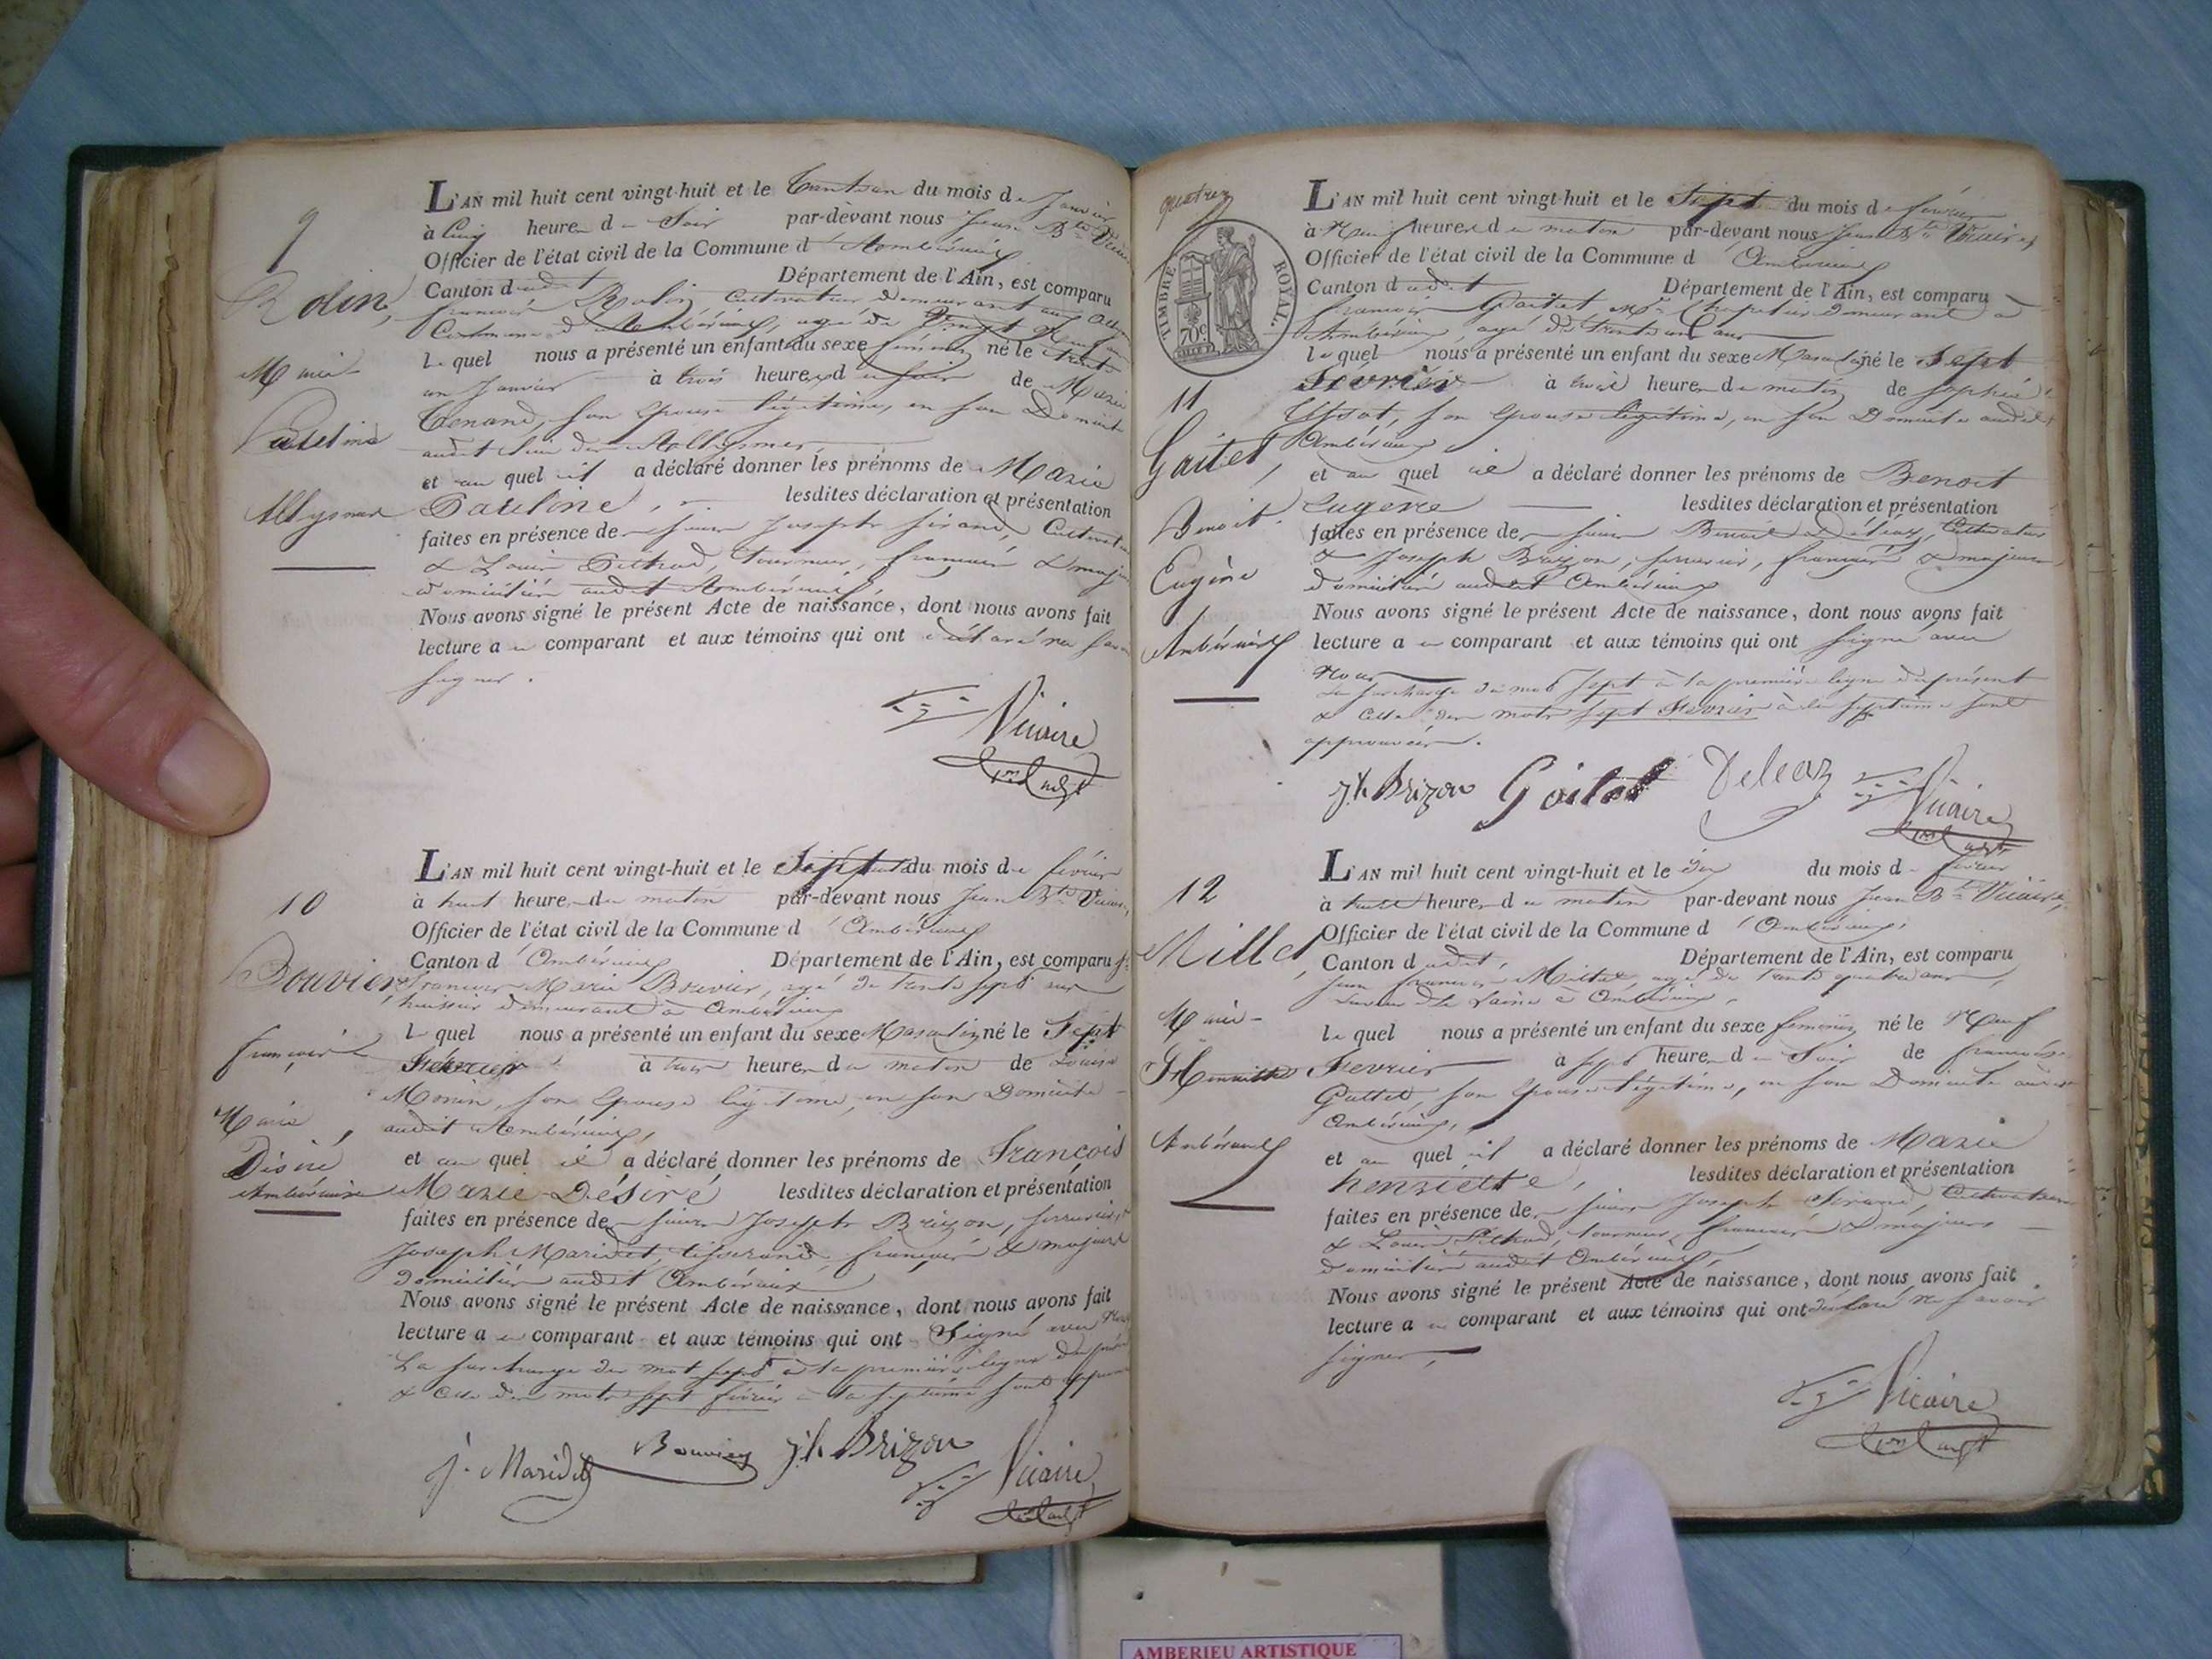 9
Rolin,
Marie
Pauline
Allysmes
L'AN mil huit cent vingt-huit et le Trente un du mois de Janvier
à Cinq heures du Soir par-devant nous Jean Bte Vicaire
Officier de l'état civil de la Commune d'Ambérieux
Canton dudit Département de l'Ain, est comparu
françois Rolin Cultivateur demeurant aux
Commune d'Ambérieux, agé de Vingt neuf ans
lequel nous a présenté un enfant du sexe féminin né le trente
un Janvier à trois heures du soir de Marie
Tenand, son épouse légitime, en son Domicile
audit lieu des Allysmes,
et auquel il a déclaré donner les prénoms de Marie
Pauline, lesdites déclaration et présentation
faites en présence des sieurs Joseph Sirand, Cultivateur
& Louis Pithod, tourneur, français & majeurs
domiciliés audit Ambérieux,
Nous avons signé le présent Acte de naissance, dont nous avons fait
lecture au comparant et aux témoins qui ont déclaré ne savoir
signer.
Vicaire
10
Bouvier
françois
Marie,
Désiré
Ambérieux
L'AN mil huit cent vingt-huit et le Sept du mois de février
à huit heures du matin par-devant nous Jean Bte Vicaire,
Officier de l'état civil de la Commune d'Ambérieux
Canton d'Ambérieux Département de l'Ain, est comparu
françois Marie Bouvier, agé de trente sept ans
huissier demeurant à Ambérieux
lequel nous a présenté un enfant du sexe Masculin né le Sept
Février à trois heures du matin de Louise
Monin, son épouse légitime, en son Domicile
audit Ambérieux,
et auquel il a déclaré donner les prénoms de François
Marie-Désiré lesdites déclaration et présentation
faites en présence des sieurs Joseph Brizon, serrurier, &
Joseph Maridet, tisserand, français & majeurs
domiciliés audit Ambérieux
Nous avons signé le présent Acte de naissance, dont nous avons fait
lecture au comparant et aux témoins qui ont Signé avec Nous
La surcharge du mot sept à la première ligne du présent
& celle des mots sept février à la septième sont
J. Maridet Bouvier Jh Brizon Vicaire
TIMBRE ROYAL
70c
11
Gaitet,
Benoit
Eugène
Ambérieux
L'AN mil huit cent vingt-huit et le Sept du mois de février
à Neuf heures du matin par-devant nous Jean Bte Vicaire,
Officier de l'état civil de la Commune d'Ambérieux
Canton dudit Département de l'Ain, est comparu
françois Gaitet Md Chapelier demeurant à
Ambérieux, agé de trente un ans
lequel nous a présenté un enfant du sexe Masculin né le Sept
Février à trois heures du matin de Sophie
son épouse légitime, en son Domicile audit
Ambérieux,
et auquel il a déclaré donner les prénoms de Benoit
Eugène lesdites déclaration et présentation
faites en présence des sieurs Benoit Déléaz, Cultivateur
& Joseph Brizon, serrurier, français & majeurs
domiciliés audit Ambérieux
Nous avons signé le présent Acte de naissance, dont nous avons fait
lecture au comparant et aux témoins qui ont signé avec
Nous
La surcharge du mot Sept à la première ligne du présent
& celle des mots sept Février à la septième sont
approuvées.
Jh Brizon Gaitet Deleaz Vicaire
12
Millet,
Marie
Henriette
Ambérieux
L'AN mil huit cent vingt-huit et le dix du mois de février
à heures du matin par-devant nous Jean Bte Vicaire,
Officier de l'état civil de la Commune d'Ambérieux,
Canton dudit, Département de l'Ain, est comparu
Jean françois Millet, agé de trente quatre ans,
de laine à Ambérieux,
lequel nous a présenté un enfant du sexe féminin né le Neuf
Fevrier à sept heures du Soir de françoise
son épouse légitime, en son Domicile audit
Ambérieux,
et auquel il a déclaré donner les prénoms de Marie
henriette, lesdites déclaration et présentation
faites en présence des sieurs Joseph Sirand, Cultivateur
& Louis Pithod, tourneur, français & majeurs
domiciliés audit Ambérieux,
Nous avons signé le présent Acte de naissance, dont nous avons fait
lecture au comparant et aux témoins qui ont déclaré ne savoir
signer,
Vicaire
AMBERIEU ARTISTIQUE